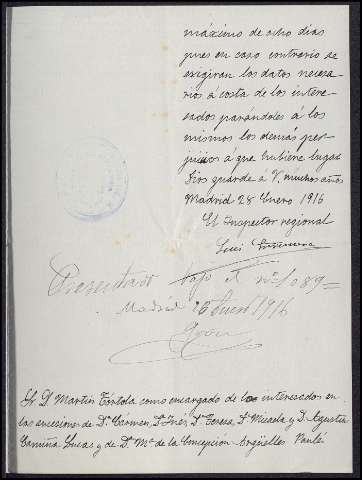 máximo de ocho dias
pues en caso contrario se
exigiran los datos necesa-
rios á costa de los intere-
sados parándoles á los
mismos los demás per-
juicios á que hubiere lugar
Dios guarde a V. muchos años
Madrid 28 Enero 1916
El Inspector regional
Luis
Presentado bajo el nº 1089=
Madrid Enero 1916
Sr. D. Martín Tórtola como encargado de los interesados en
las sucesiones de Dª Cármen, Dª Inés, Dª Teresa, Dª Micaela y D. Agustin
Camiña Lucas y de Dª Mª de la Concepción Argüelles